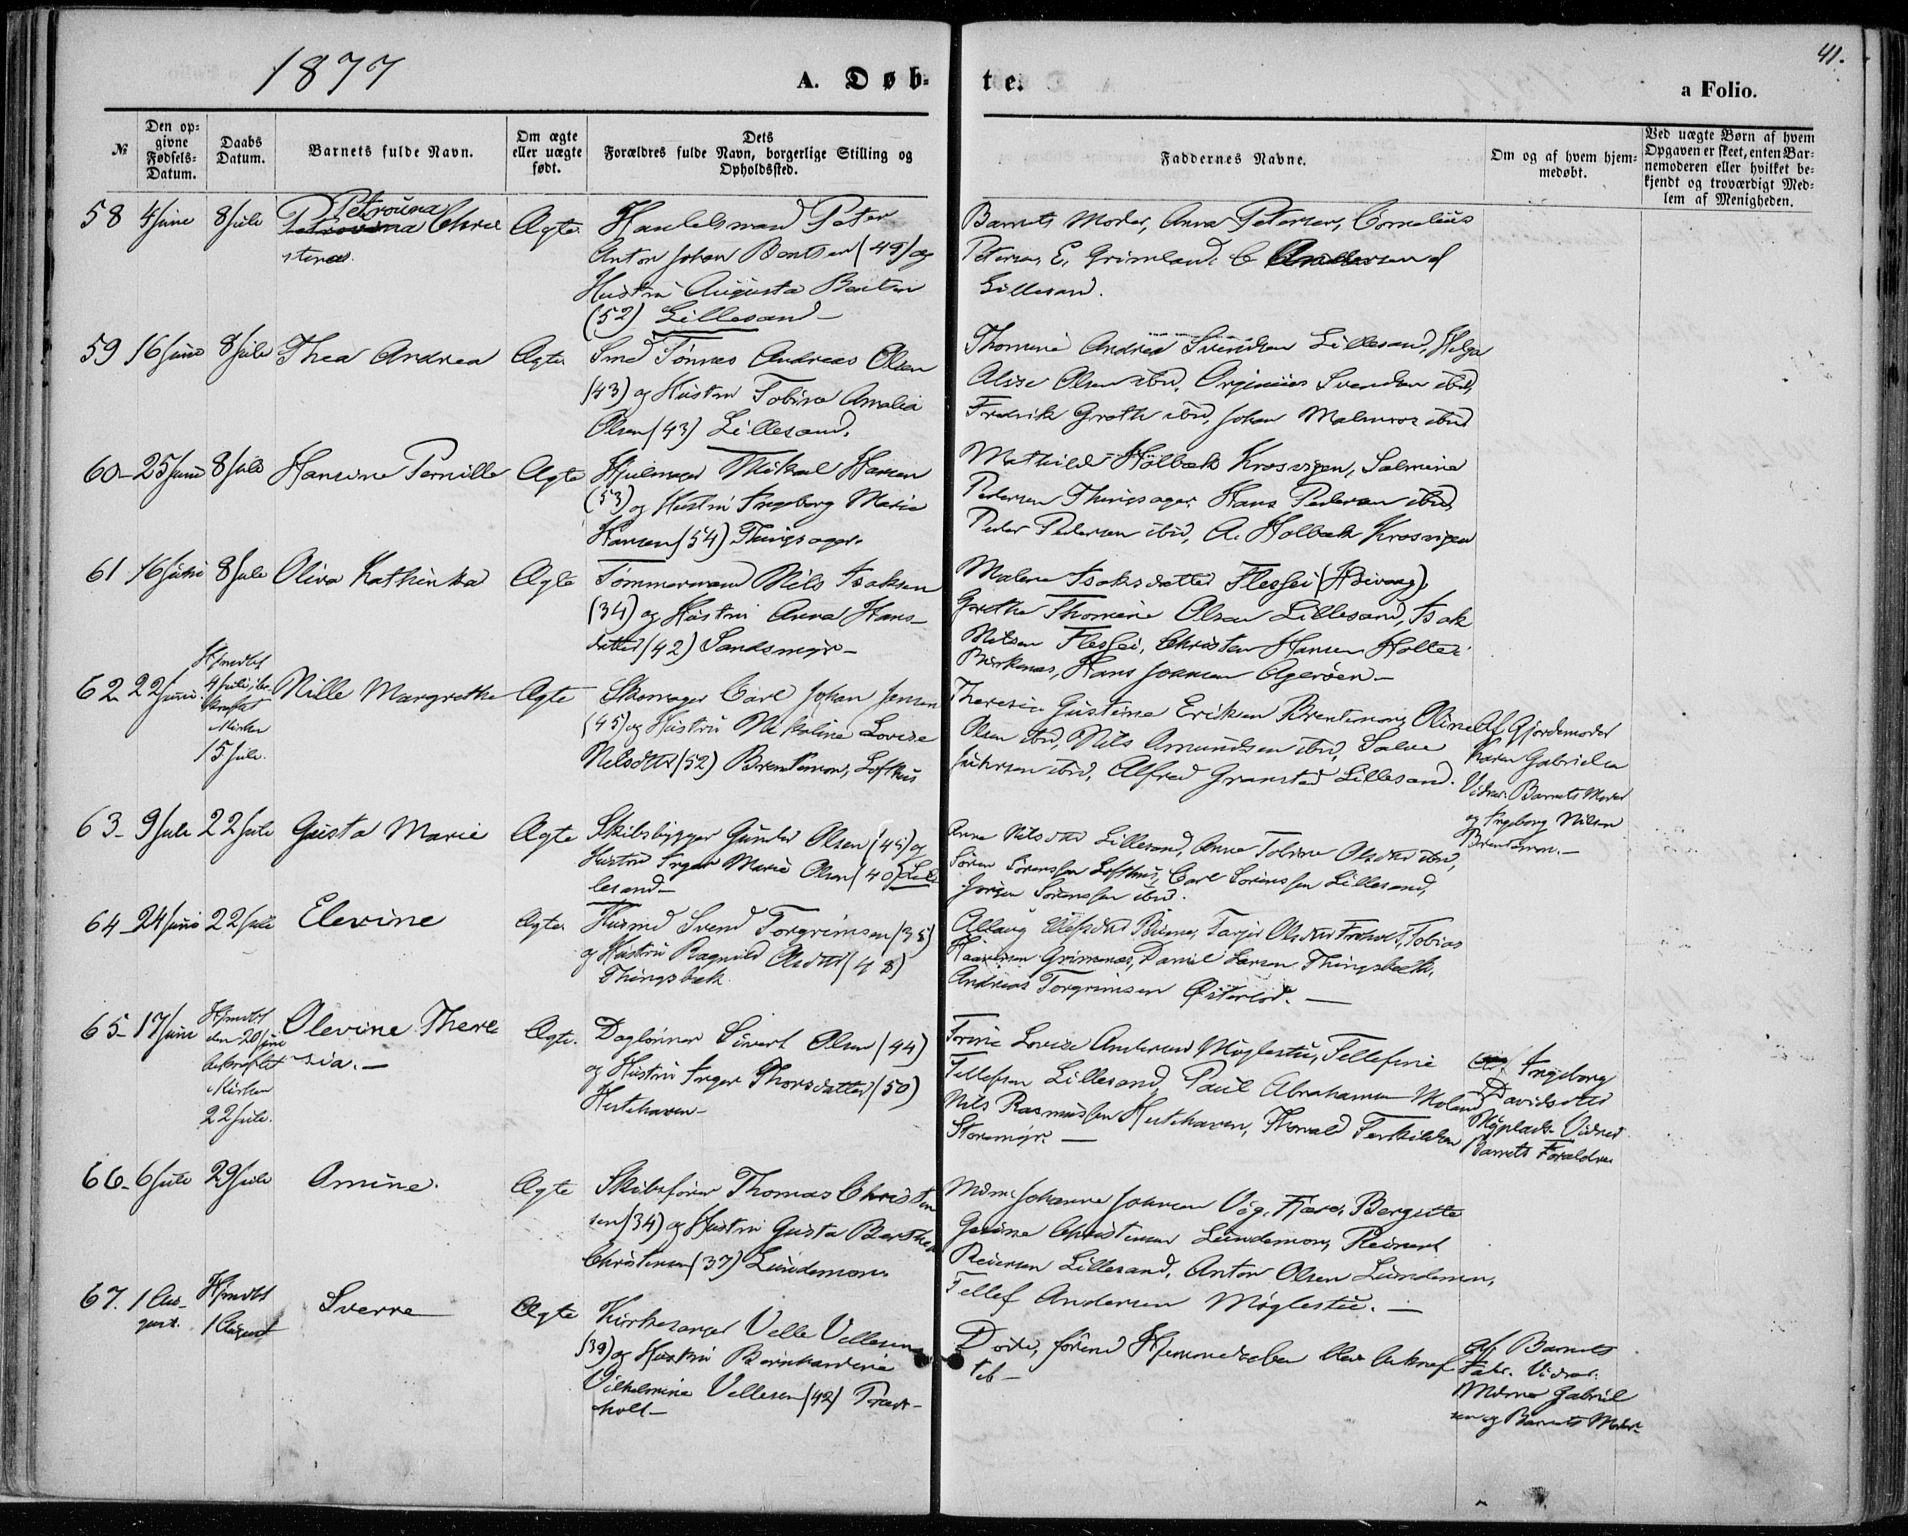 1877
A. Døb-
te.
a Folio.
41.
№
Den op-
givne
Fødsels-
Datum.
Daabs
Datum.
Barnets fulde Navn.
Om ægte
eller uægte
født.
Dets
Forældres fulde Navn, borgerlige Stilling og
Opholdssted.
Faddernes Navne.
Om og af hvem hjem-
medøbt.
Ved uægte Børn af hvem
Opgaven er skeet, enten Bar-
nemoderen eller hvilket be-
kjendt og troværdigt Med-
lem af Menigheden.
58 4 Juni 8 Juli Petrouna Chris
stense. Ægte
Handelsmand Peter
Anton Johan Bentsen (49) og
Hustru Augusta Bentsen
(52) Lillesand
Barnets Moder, Anna Petersen, Cornelius
Petersen, E. Grimland, C Andersen af
Lillesand.
59 16 Juni 8 Juli Thea Andrea Ægte
Smed Tønnes Andreas Olsen
(43) og Hustru Tobine Amalia
Olsen (43) Lillesand.
Thomine Andrea Svendsen Lillesand, Helga
Olsen ibd, Svendsen ibd,
Fredrik Groth ibd, Johan Malmros ibd
60 25 Juni 8 Juli Hansine Pernille Ægte
Hjulmager Mikal Hansen
(53) og Hustru Ingeborg Marie
Hansen (54) Thingsager.
Mathilde Holbæk Krosvigen, Salmine
Pedersen Thingsager, Hans Pedersen ibd,
Peder Pedersen ibd, A. Holbæk Krosvigen
61 16 Juni 8 Juli Oliva Kathinka Ægte
Tømmermand Nils Isaksen
(34) og Hustru Anna Hans-
datter (42) Sandsmyr
Malene Isaksdatter Flessei (Høivaag),
Grethe Thomine Olsen Lillesand, Isak
Nilsen Flessei, Christen Hansen Holte i
Birkenæs, Hans Johnsen Agerøen.
62 22 Juni Hjmdbt
4 Juli, be-
kræftet
i Kirken
15 Juli.
Nille Margrethe Ægte
Skomager Carl Johan Jensen
(45) og Hustru Nikoline Lovise
Nilsdtr (52) Brentemoen, Lofthus
Theresia Gustine Eriksen Brentemoen, Oline
Olsen ibd, Nils Amundsen ibd, Salve
ibd, Alfred Granstad Lillesand.
Af Gjordemoder
Karen Gabrielsen
Vidner: Barnets Moder
og Ingeborg Nilsen
Brentemoen.
63 9 Juli 22 Juli Gusta Marie Ægte
Skibsbygger Gunder Olsen (45) og
Hustru Inger Marie Olsen (40) Lil-
lesand
Anne Nilsdtr Lillesand, Anne Tobine Olsdtr ibd,
Søren Sørenssen Lofthus, Carl Sørenssen Lillesand,
Jørgen Sørenssen ibd.
64 24 Juni 22 Juli Elevine Ægte
Husmd Svend Torgrimsen (35)
og Hustru Ragnild Olsdtr (48)
Thingsbæk
Tarjer Olsdtr Froholt, Tobias
Grimenæs, Daniel Larsen Thingsbæk,
Andreas Torgrimsen Østerlod.
65 17 Juni Hjmdbt
den 20 Juni
bekræftet
i Kirken
22 Juli.
Olevine There
sia. Ægte.
Daglønner Sivert Olsen (44)
og Hustru Inger Thorsdatter (50)
Hestehaven
Torine Lovise Andersen Møglestue, Tellefine
Tellefsen Lillesand, Paul Abrahamsen Moland,
Nils Rasmussen Hestehaven, Thorvald Terkildsen
Storemyr.
af Ingeborg
Davidsdtr
Vidner
Barnets Forældre
66 6 Juli 29 Juli Amine. Ægte
Skibsfører Thomas Christen
sen (34) og Hustru Gusta Berthea
Christensen (37) Lundemoen
Mdm: Johanne Johnsen Vig, Fjære, Bergitte
Gesine Christensen Lundemoen, Reinert
Reiersen Lillesand, Anton Olsen Lundemoen,
Tellef Andersen Møglestue.
67. 1 Au-
gust. Hjmdbt
1 August
Sverre Ægte
Kirkesanger Velle Vellesen
(39) og Hustru Bernhardine
Vilhelmine Vellesen (42) Træk-
holt
Døde, førend Hjemmedaaben blev bekræf
tet
af Barnets
Fader. Vidner:
Mdme Gabriel
sen og Barnets Moder